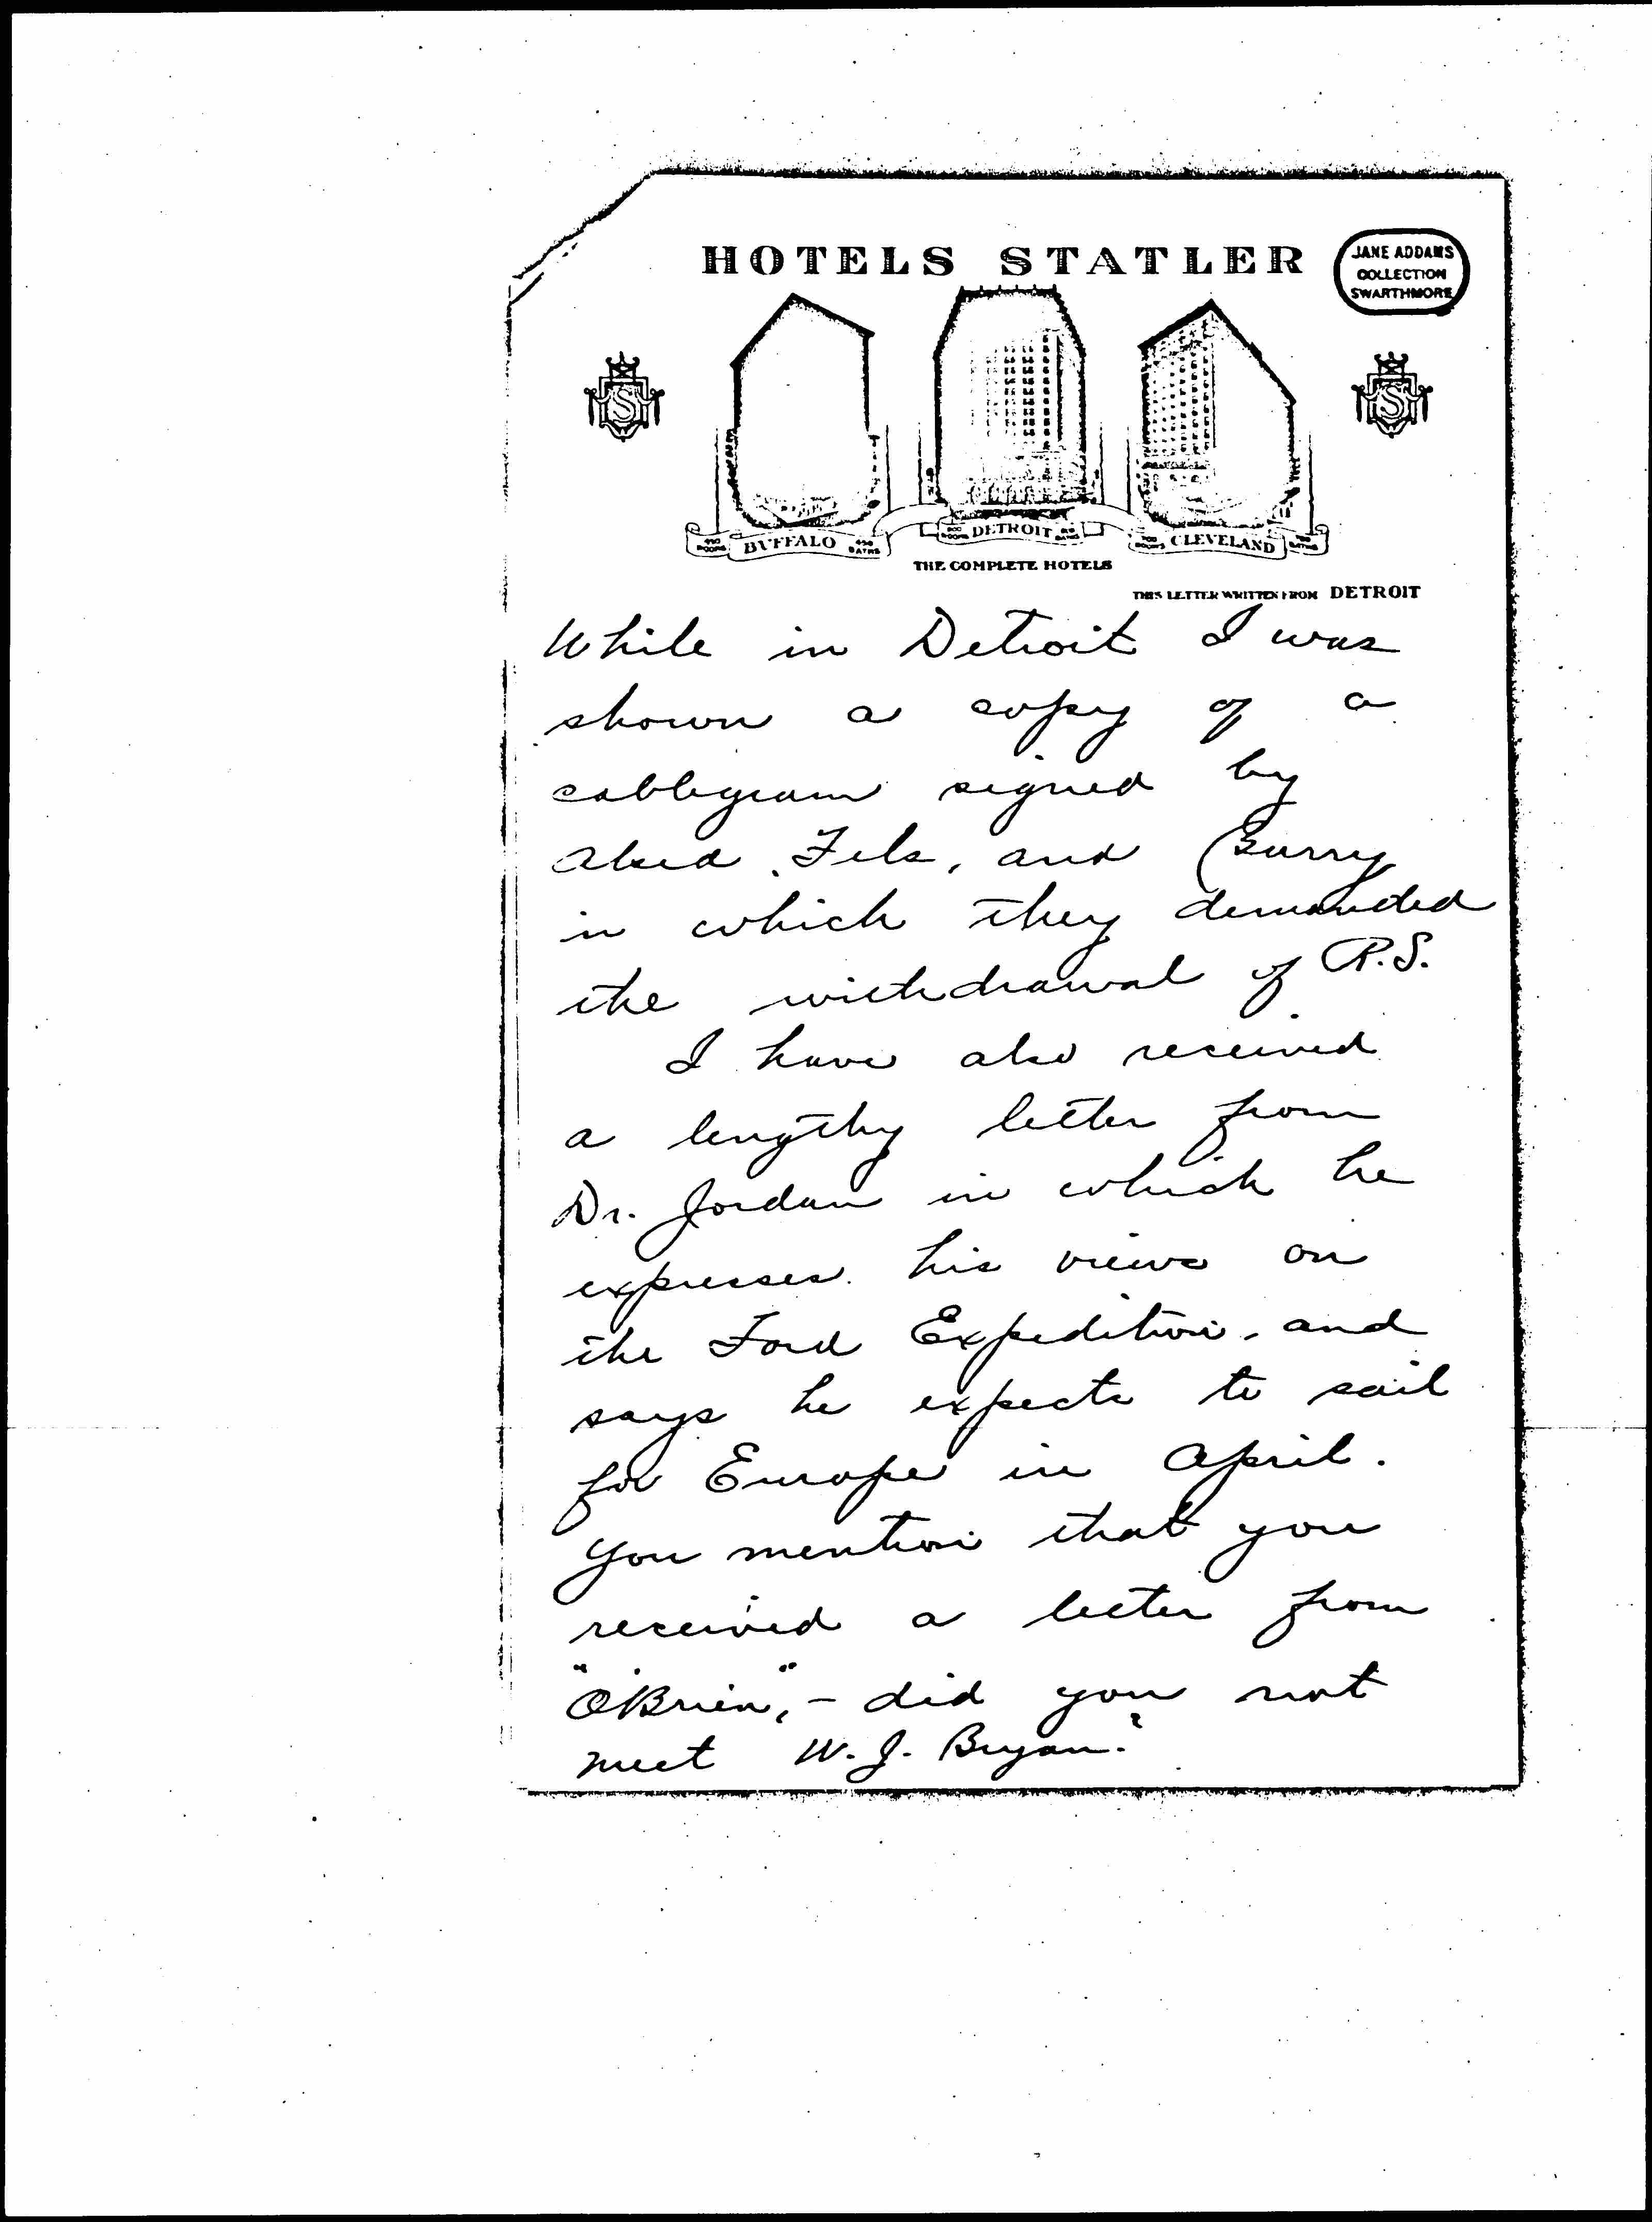 HOTELS STATLER
JANE ADDAMS
COLLECTION
SWARTHMORE
S
S
450 ROOMS BUFFALO 450 BATHS
DETROIT
700 ROOMS CLEVELAND 700 BATHS
THE COMPLETE HOTELS
THIS LETTER WRITTEN FROM DETROIT
While in Detroit I was
shown a copy of a
cablegram signed by
Aked Fels, and Barry
in which they demanded
the withdrawal of R.S.
I have also received
a lengthy letter from
Dr. Jordan in which he
expresses his views on
the Ford Expedition, and
says he expects to sail
for Europe in April.
You mention that you
received a letter from
"O'Brien", - did you not
meet W. J. Bryan?